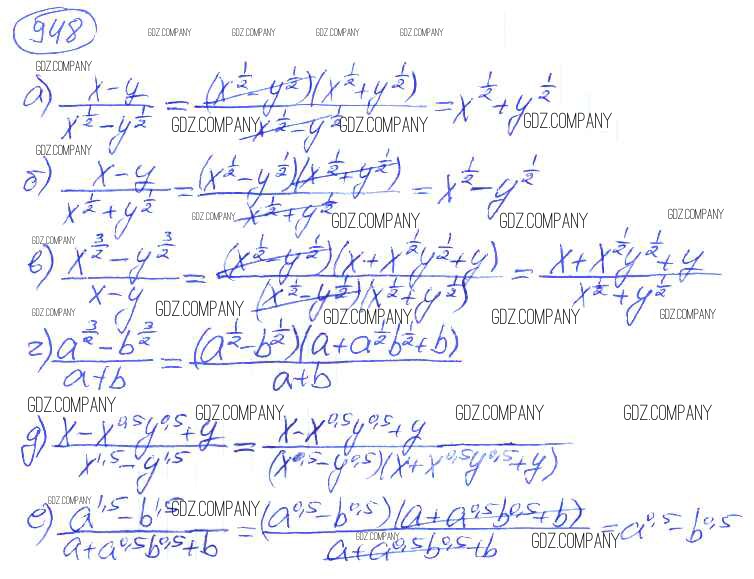 948
GDZ.COMPANY GDZ.COMPANY GDZ.COMPANY GDZ.COMPANY
GDZ.COMPANY
а) (x-y)/(x^(1/2)-y^(1/2)) = ((x^(1/2)-y^(1/2))(x^(1/2)+y^(1/2)))/(x^(1/2)-y^(1/2)) = x^(1/2)+y^(1/2)
GDZ.COMPANY GDZ.COMPANY GDZ.COMPANY
GDZ.COMPANY
б) (x-y)/(x^(1/2)+y^(1/2)) = ((x^(1/2)-y^(1/2))(x^(1/2)+y^(1/2)))/(x^(1/2)+y^(1/2)) = x^(1/2)-y^(1/2)
GDZ.COMPANY GDZ.COMPANY GDZ.COMPANY GDZ.COMPANY
GDZ.COMPANY
в) (x^(3/2)-y^(3/2))/(x-y) = ((x^(1/2)-y^(1/2))(x+x^(1/2)y^(1/2)+y))/((x^(1/2)-y^(1/2))(x^(1/2)+y^(1/2))) = (x+x^(1/2)y^(1/2)+y)/(x^(1/2)+y^(1/2))
GDZ.COMPANY GDZ.COMPANY GDZ.COMPANY GDZ.COMPANY GDZ.COMPANY
г) (a^(3/2)-b^(3/2))/(a+b) = ((a^(1/2)-b^(1/2))(a+a^(1/2)b^(1/2)+b))/(a+b)
GDZ.COMPANY GDZ.COMPANY GDZ.COMPANY GDZ.COMPANY
д) (x-x^0,5y^0,5+y)/(x^1,5-y^1,5) = (x-x^0,5y^0,5+y)/((x^0,5-y^0,5)(x+x^0,5y^0,5+y))
GDZ.COMPANY GDZ.COMPANY
е) (a^1,5-b^1,5)/(a+a^0,5b^0,5+b) = ((a^0,5-b^0,5)(a+a^0,5b^0,5+b))/(a+a^0,5b^0,5+b) = a^0,5-b^0,5
GDZ.COMPANY GDZ.COMPANY